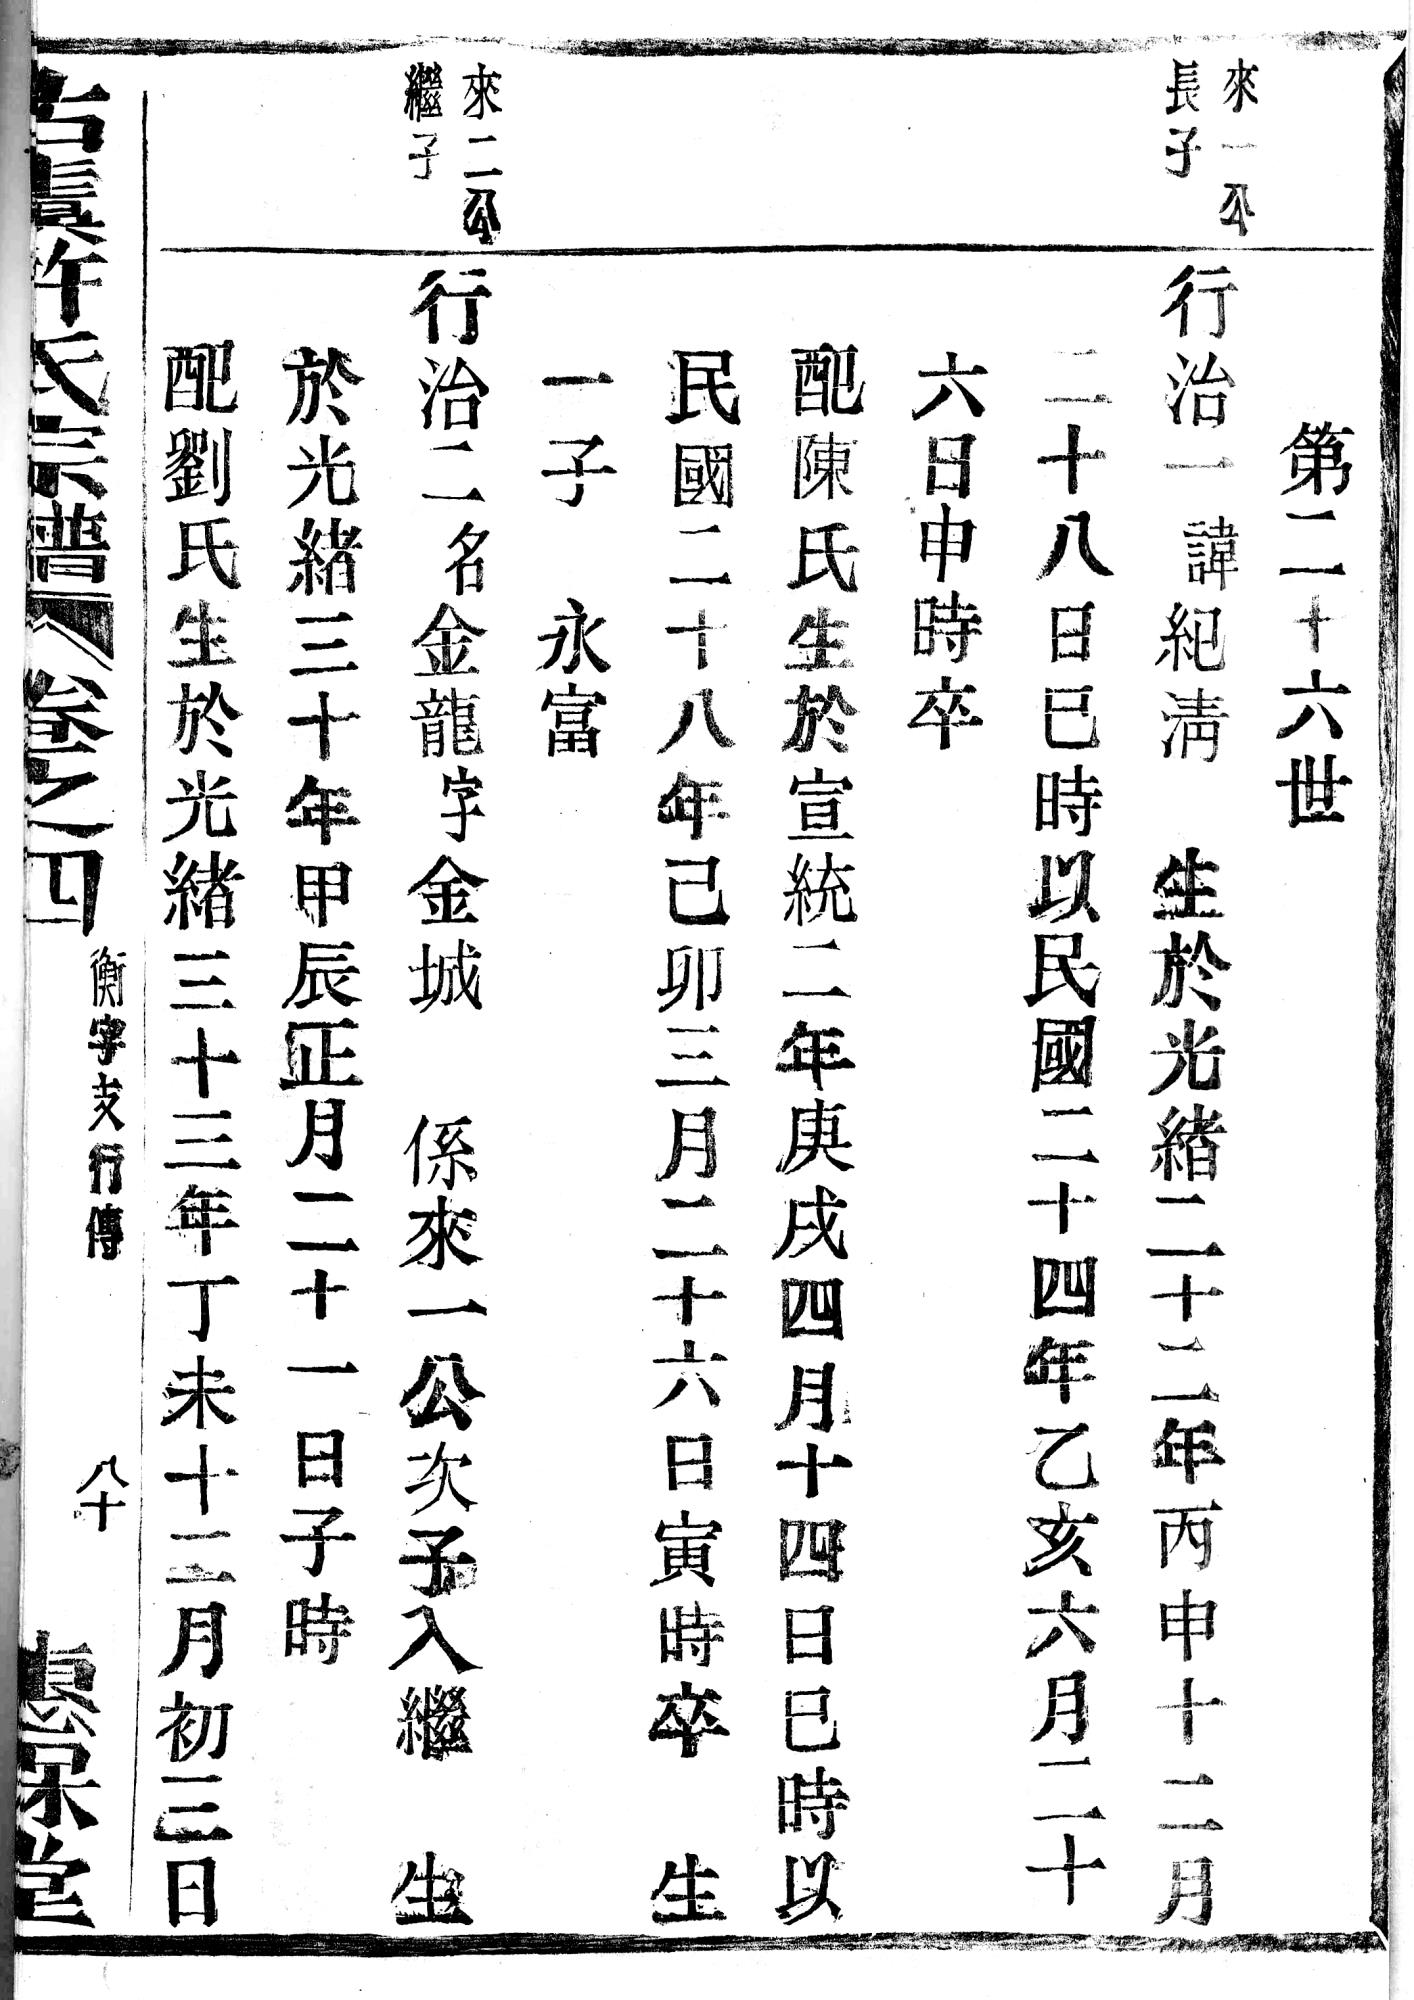 第二十六世
來一公
長子
行治一 諱紀淸 生於光緒二十二年丙申十二月
二十八日巳時以民國二十四年乙亥六月二十
六日申時卒
配陳氏生於宣統二年庚戌四月十四日巳時以
民國二十八年己卯三月二十六日寅時卒 生
一子 永富
來二公
繼子
行治二名金龍字金城 係來一公次子入繼 生
於光緒三十年甲辰正月二十一日子時
配劉氏生於光緒三十三年丁未十二月初三日
古虞許氏宗譜 卷之四
衡字支行傳
八十
惠保堂